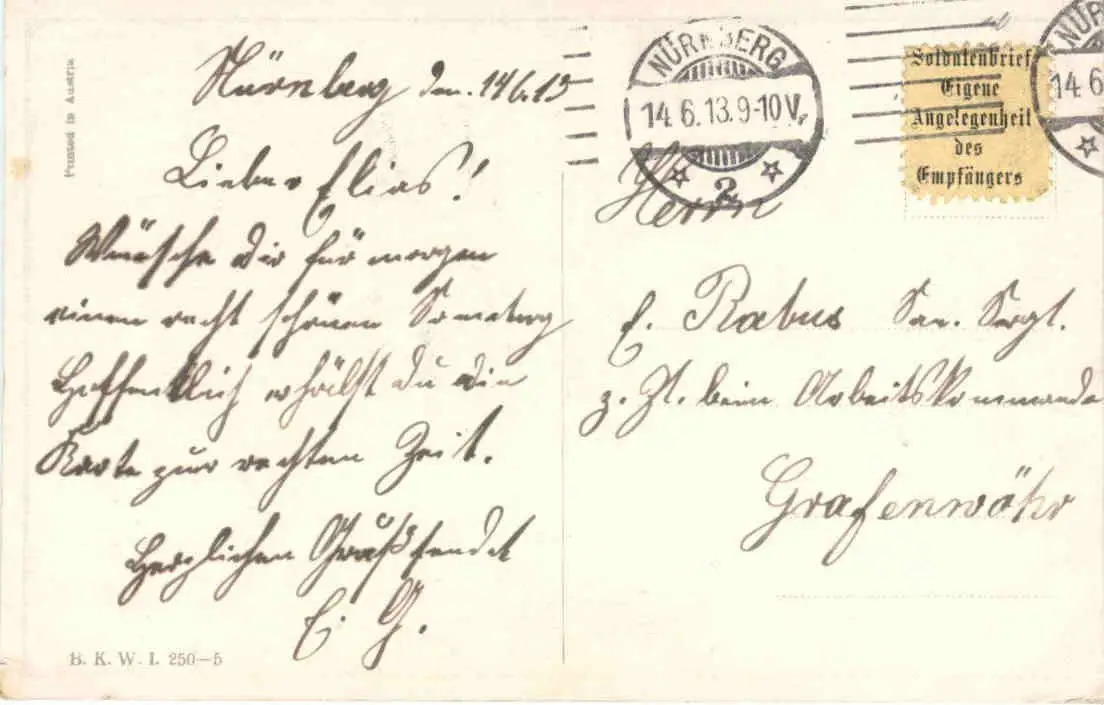 Printed in Austria
Nürnberg den. 14/6.13
Lieber Elias!
Wünsche dir für morgen
einen recht schönen Sonntag
Hoffentlich erhälst du die
Karte zur rechten Zeit.
Herzlichen Gruß sendet
E. G.
B. K. W. I. 250-5
NÜRNBERG
14.6.13.9-10V.
2
NÜR
14.6
Soldatenbrief
Eigene
Angelegenheit
des
Empfängers
Herrn
E. Rabus San. Sergt.
z. Zt. beim Arbeitskommando
Grafenwöhr